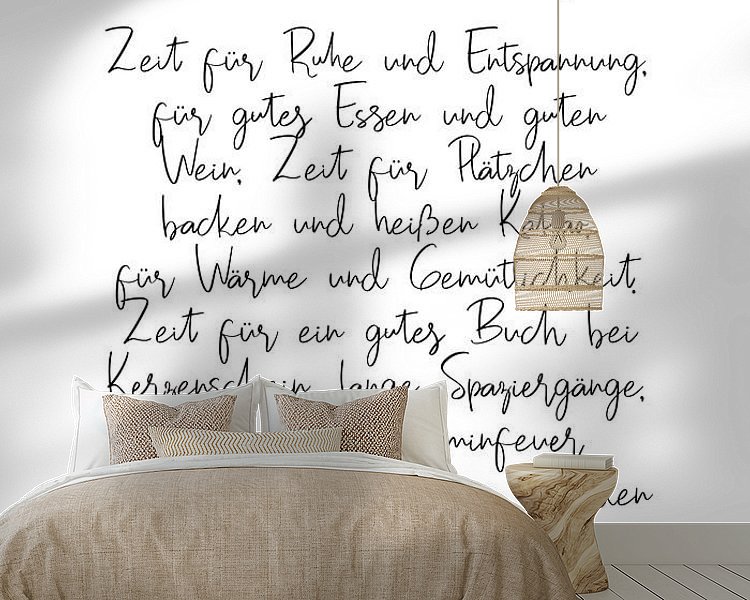 Zeit für Ruhe und Entspannung,
für gutes Essen und guten
Wein, Zeit für Plätzchen
backen und heißen Kakao,
für Wärme und Gemütlichkeit.
Zeit für ein gutes Buch bei
Kerzenschein, lange Spaziergänge,